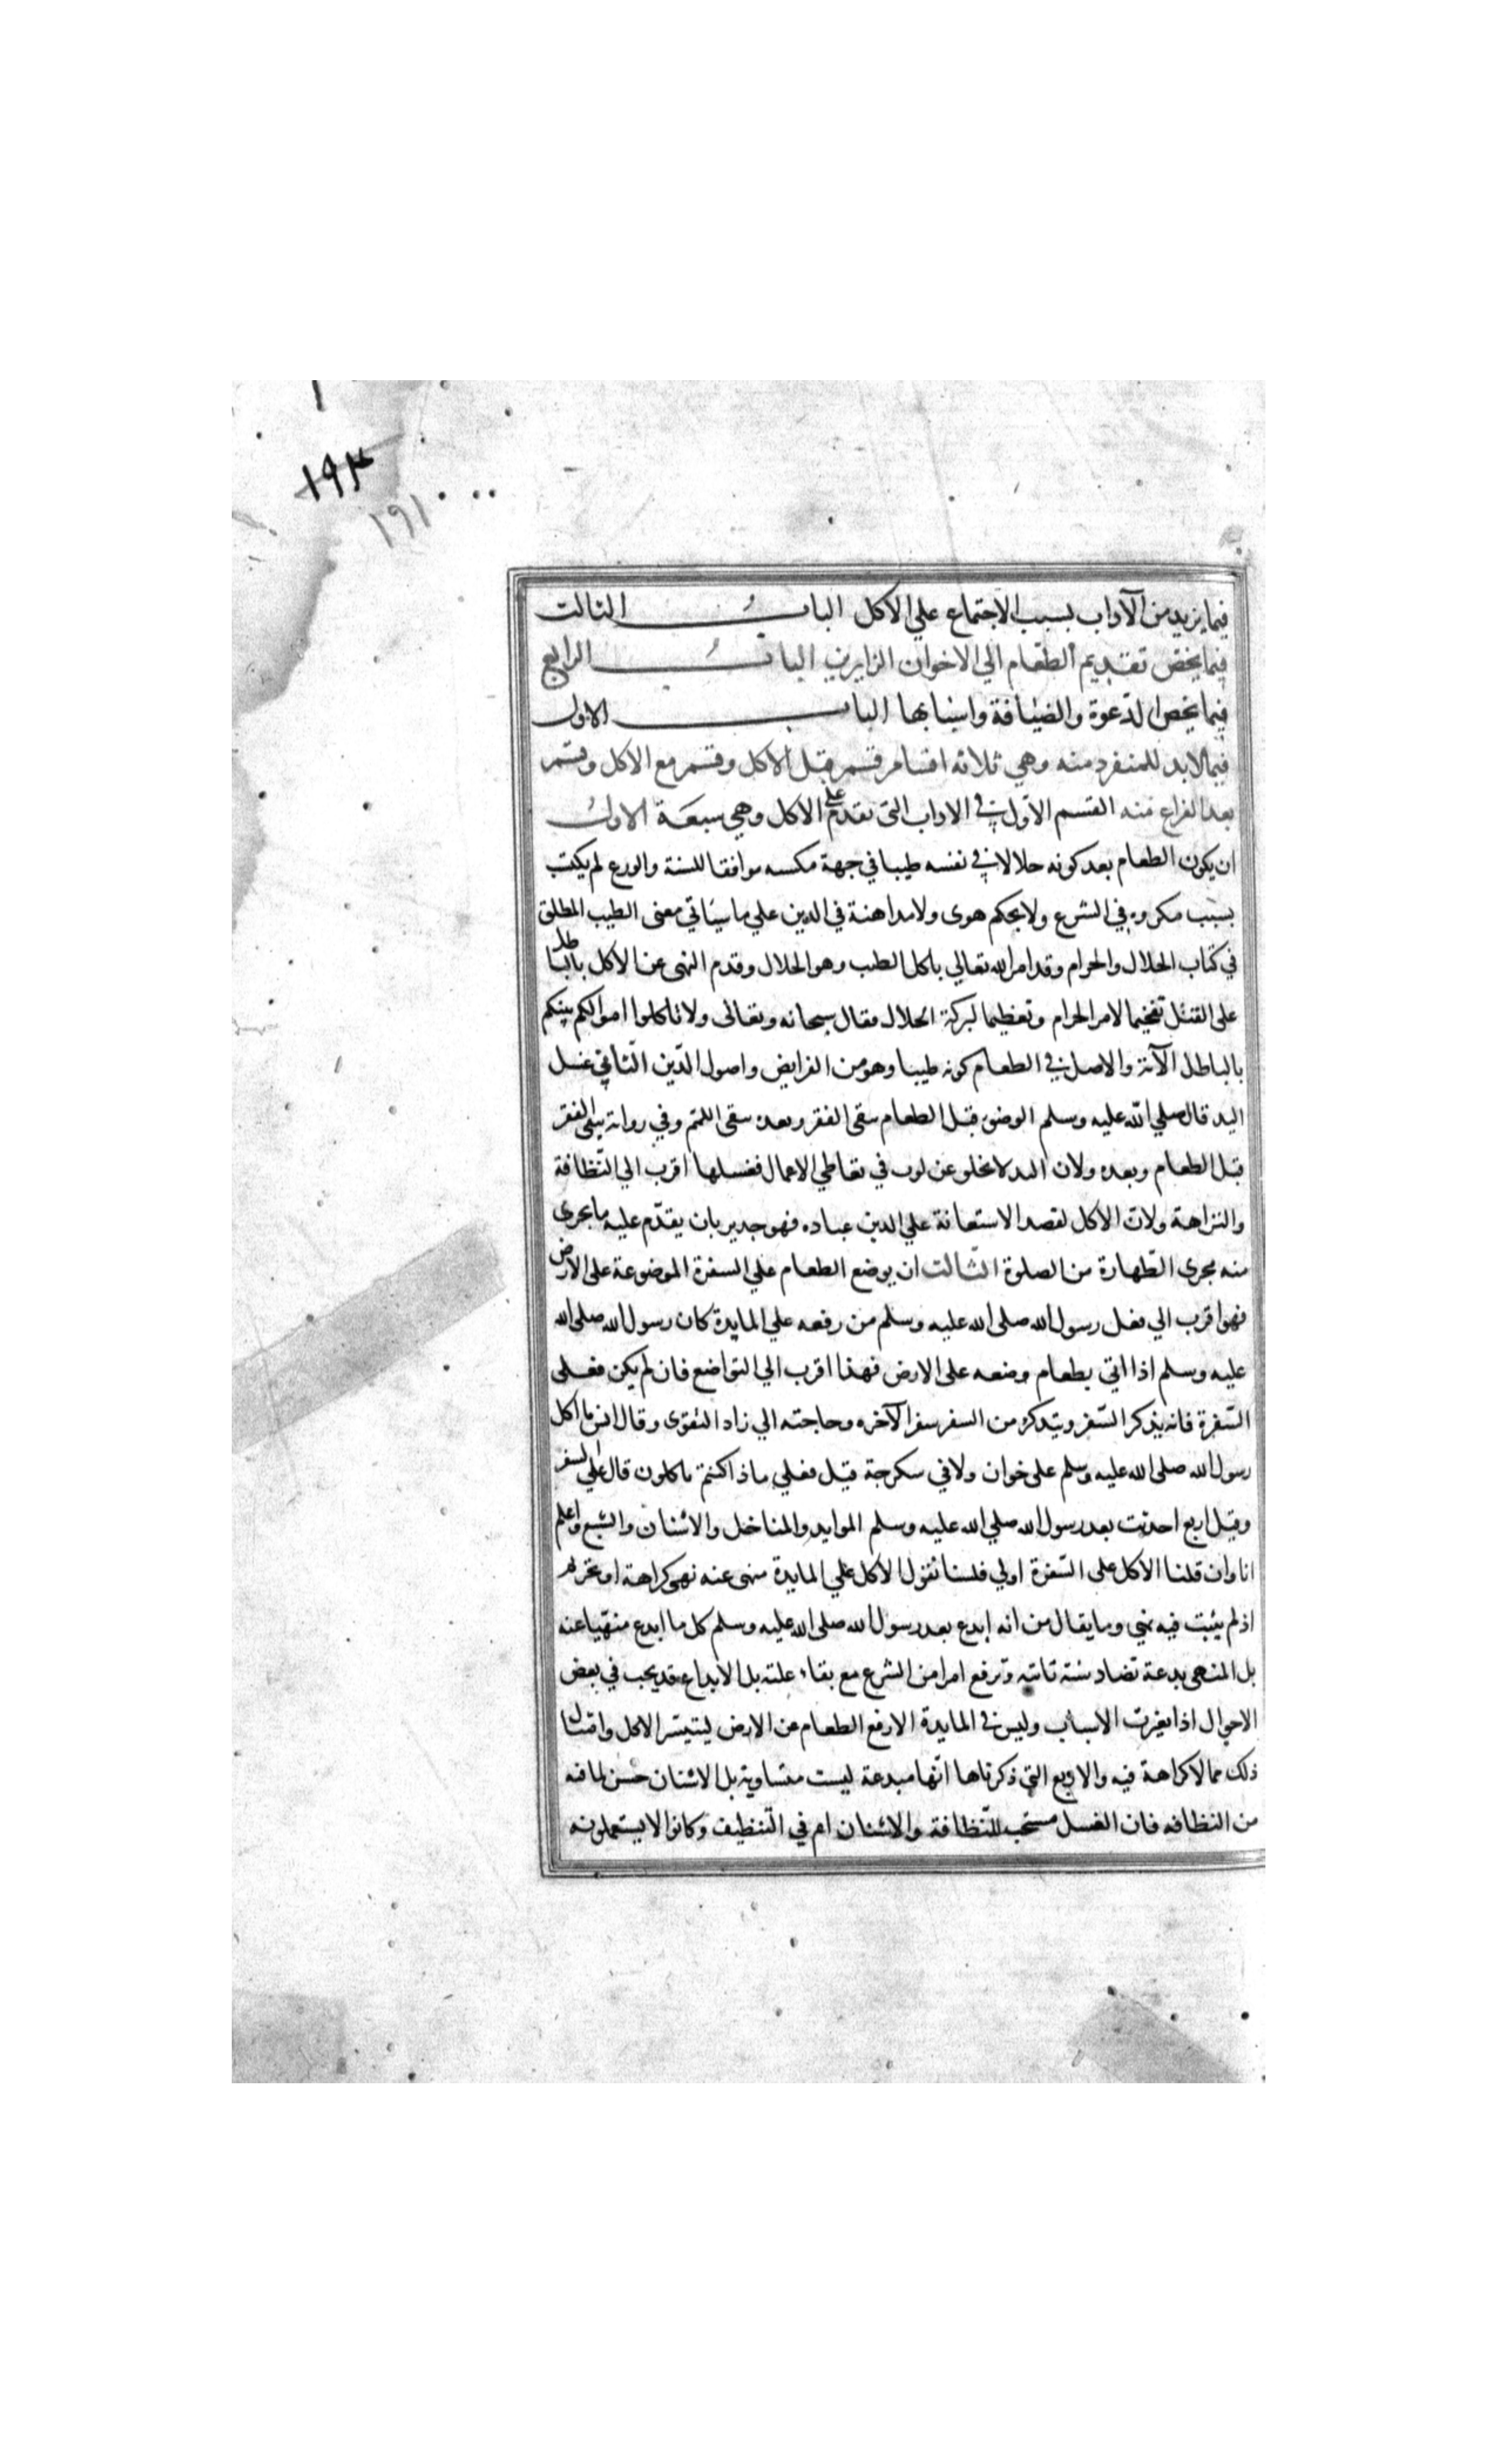 ١٩٣
١٩١
فيما يزيد من الآداب بسبب الاجتماع علي الاكل الباب الثالث
فيما يخص تقديم الطعام الي الاخوان الزايرين الباب الرابع
فيما يخص الدعوة والضيافة واسبابها الباب الاول
فيما لابد للمنفرد منه وهي ثلاثه اقسام قسم قبل الاكل وقسم مع الاكل وقسم
بعد الفراغ منه القسم الاول في الاداب التي تقدم علي الاكل وهي سبعة الاول
ان يكون الطعام بعد كونه حلالا في نفسه طيبا في جهة مكسبه موافقا للسنة والورع لم يكتسب
بسبب مكروه في الشرع ولا بحكم هوى ولا مداهنة في الدين علي ما سياتي معنى الطيب المطلق
في كتاب الحلال والحرام وقد امر الله تعالي باكل الطيب وهو الحلال وقدم النهى عن الاكل بالباطل
على القتل تفخيما لامر الحرام وتعظيما لبركة الحلال فقال سبحانه وتعالى ولا تاكلوا اموالكم بينكم
بالباطل الآية والاصل في الطعام كونه طيبا وهو من الفرايض واصول الدين الثاني غسل
اليد قال صلي الله عليه وسلم الوضوء قبل الطعام ينفي الفقر وبعده ينفي اللمم وفي رواية ينفي الفقر
قبل الطعام وبعده ولان اليد لا تخلو عن لوث في تعاطي الاعمال فغسلها اقرب الي النظافة
والنزاهة ولان الاكل لقصد الاستعانة علي الدين عباده فهو جدير بان يقدم عليه ما يجري
منه مجرى الطهارة من الصلوة الثالث ان يوضع الطعام علي السفرة الموضوعة على الارض
فهو اقرب الي فعل رسول الله صلى الله عليه وسلم من رفعه علي المايدة كان رسول الله صلى الله
عليه وسلم اذا اتي بطعام وضعه على الارض فهذا اقرب الي التواضع فان لم يكن فعلى
السفرة فانه يذكر السفر ويتذكر من السفر سفر الآخره وحاجته الي زاد التقوى وقال انس ما اكل
رسول الله صلى الله عليه وسلم على خوان ولا في سكرجة قيل فعلي ماذا كنتم تاكلون قال علي السفر
وقيل اربع احدثت بعد رسول الله صلي الله عليه وسلم الموايد والمناخل والاشنان والشبع واعلم
انا وان قلنا الاكل على السفرة اولي فلسنا نقول الاكل علي المايدة منهى عنه نهى كراهة او تحريم
اذ لم يثبت فيه نهي وما يقال من انه ابدع بعد رسول الله صلى الله عليه وسلم كل ما ابدع منهيا عنه
بل المنهى بدعة تضاد سنة ثابته وترفع امرا من الشرع مع بقاء علته بل الابداع قد يجب في بعض
الاحوال اذا تغيرت الاسباب وليس في المايدة الا رفع الطعام عن الارض ليتيسر الاكل وامثال
ذلك مما لا كراهة فيه والاربع التي ذكرناها انها مبدعة ليست متساوية بل الاشنان حسن لما فيه
من النظافه فان الغسل مستحب للنظافة والاشنان اتم في التنظيف وكانوا لا يستعملونه